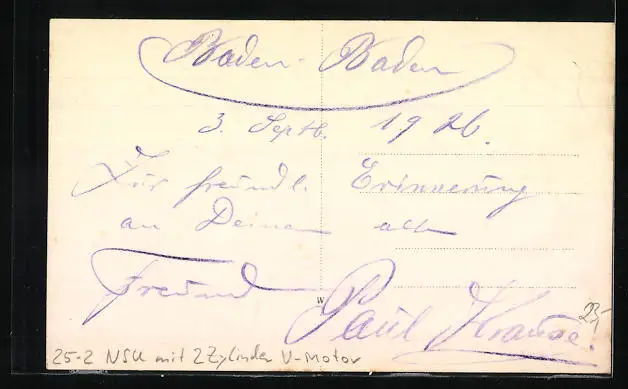 Baden-Baden
3. Septb. 1926.
Zur freundl. Erinnerung
an Deinen alten
Freund
Paul Krause.
23,-
25-2 NSU mit 2 Zylinder V-Motor